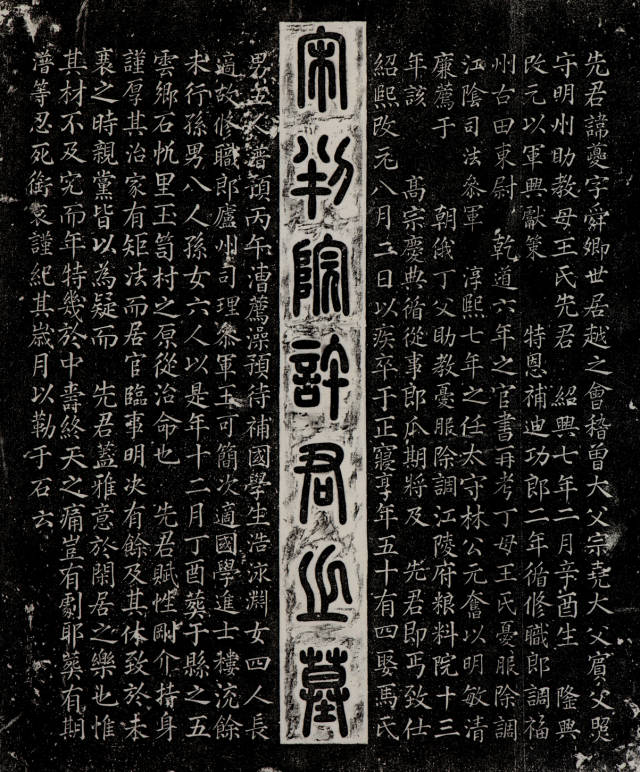 先君諱夔字舜卿世居越之會稽曾大父宗堯大父賓父
守明州助教母王氏先君 紹興七年二月辛酉生 隆興
改元以軍興獻策 特恩補迪功郎二年循修職郎調福
州古田東尉 乾道六年之官書再考丁母王氏憂服除調
江陰司法叅軍 淳熙七年之任太守林公元奮以明敏清
廉薦于 朝俄丁父助教憂服除調江陵府粮料院十三
年該 高宗慶典循從事郎瓜期將及 先君即丐致仕
紹熙改元八月二日以疾卒于正寢享年五十有四娶馬氏
宋判院許君之墓
男五人濳預丙午漕薦澡預待補國學生浩泳淵女四人長
適故修職郎廬州司理叅軍王可簡次適國學進士樓沇餘
未行孫男八人孫女六人以是年十二月丁酉葬于縣之五
雲鄉石忱里玉笥村之原從治命也 先君賦性剛介持身
謹厚其治家有矩法而居官臨事明决有餘及其休致於未
衰之時親黨皆以為疑而 先君蓋雅意於閑居之樂也惟
其材不及究而年特幾於中壽終天之痛豈有劇耶葬有期
濳等忍死銜哀謹紀其歲月以勒于石云